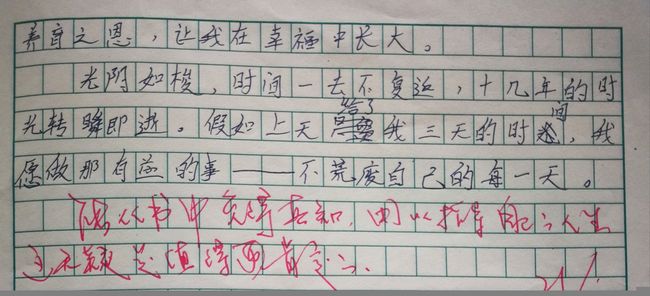 养育之恩，让我在幸福中长大。
光阴如梭，时间一去不复返，十几年的时
光转瞬即逝。假如上天给了我三天的时间，我
愿做那有益的事——不荒度自己的每一天。
能从书中 真知，用以指导自己的人生
这无疑是值得 肯定的。